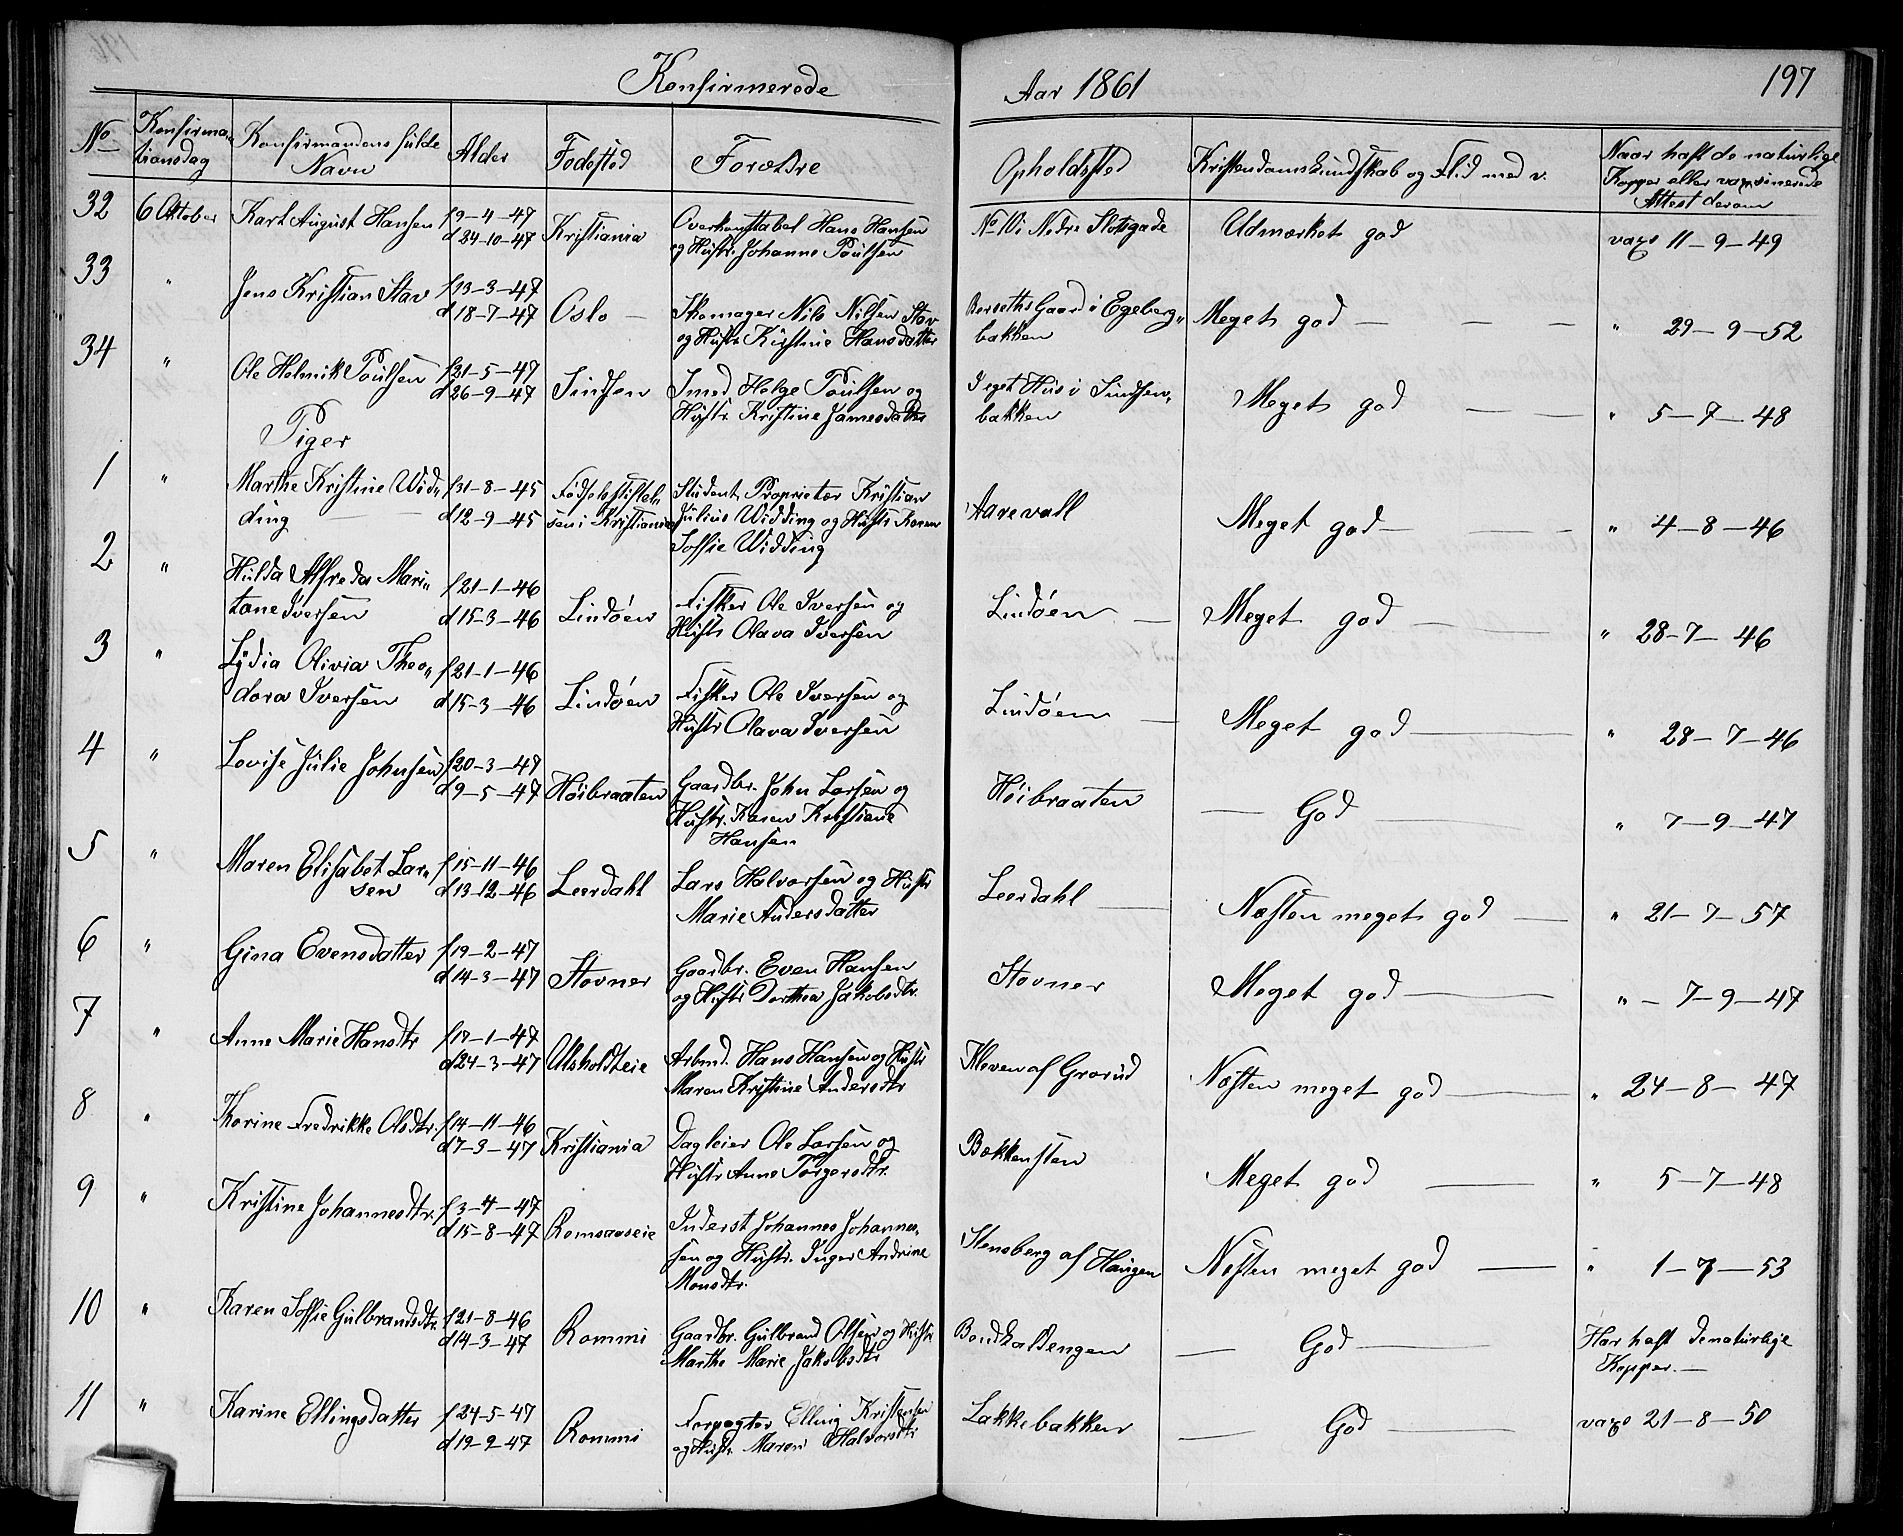 Konfirmerede
Aar 1861
197
No
Konfirma„
tionsdag
Konfirmandens fulde
Navn
Alder
Fødested
Forældre
Opholdssted
Kristendomskundskab og Flid med v.
Naar haft de naturlige
Kopper eller vaxsinerede
Attest derom
32 6 Oktober Karl August Hansen f 9-4-47
d 24-10-47 Kristiania
Overkonstabel Hans Hansen
og Hustr. Johanne Poulsen
No 10 i Nedre Slotsgade
Udmærket god
vaxs 11-9-49
33 " Jens Kristian Stav f 13-3-47
d 18-7-47 Oslo —
Skomager Nils Nilsen Stav
og Hustr Kristine Hansdatter
Borseths Gaard i Egeberg„
bakken
Meget god — — —
" 29-9-52
34 " Ole Helmik Poulsen f 21-5-47
d 26-9-47 Sinsen
Smed Helge Poulsen og
Hustr. Kristine Jamesdatter
I eget Hus i Sindsen„
bakken
Meget god — —
" 5-7-48
Piger
1 " Marthe Kristine Wid„
ding f 31-8-45
d 12-9-45
Fødselsstiftel„
sen i Kristiania
Student Proprietær Kristian
Julius Widding og Hustr Karen
Soffie Widding
Aarevall
Meget god — — —
" 4-8-46
2 " Hulda Alfreda Mari„
tane Iversen f 21-1-46
d 15-3-46 Lindøen
Fisker Ole Iversen og
Hustr Olava Iversen
Lindøen —
Meget god — —
" 28-7-46
3 " Lydia Olivia Theo„
dora Iversen f 21-1-46
d 15-3-46 Lindøen
Fisker Ole Iversen og
Hustr Olava Iversen
Lindøen —
Meget god —
" 28-7-46
4 " Lovise Julie Johnsen f 20-3-47
d 9-5-47 Høibraaten
Gaardbr. John Larsen og
Hustr. Karen Kristiane
Hansen
Høibraaten
— God —
" 7-9-47
5 " Maren Elisabet Lar„
sen f 15-11-46
d 13-12-46 Leerdahl
Lars Halvorsen og Hustr
Marie Andersdatter
Leerdahl —
Næsten meget god —
" 21-7-57
6 " Gina Evensdatter f 19-2-47
d 14-3-47 Stovner
Gaardbr. Even Hansen
og Hustr Dorthea Jakobsdtr.
Stovner
Meget god —
" - 7-9-47
7 " Anne Marie Hansdtr f 17-1-47
d 24-3-47 Ulsholdteie
Arbmd. Hans Hansen og Hustr
Maren Kristine Andersdtr
Kleven af Grorud
Næsten meget god —
" 24-8-47
8 " Karine Fredrikke Olsdtr. f 14-11-46
d 7-3-47 Kristiania
Dagleier Ole Larsen og
Hustr Anne Torgersdtr.
Bekkensten
Meget god —
" 5-7-48
9 " Kristine Johannesdtr. f 3-4-47
d 15-8-47 Romsaaseie
Inderst Johannes Johannes„
sen og Hustr. Inger Andrine
Monsdtr.
Stensberg af Haugen
Næsten meget god —
" 1-7-53
10 " Karen Soffie Gulbrandsdtr. f 21-8-46
d 14-3-47 Rommi
Gaardbr. Gulbrand Olsen og Hustr
Marthe Marie Jakobsdtr
— God —
Har haft denaturlige
Kopper. —
11 " Karine Ellingsdatter f 24-5-47
d 19-9-47 Rommi
Forpagter Elling Kristensen
og Hustr Maren Halvorsdtr
Lakkebakken
— God —
vaxs 21-8-50